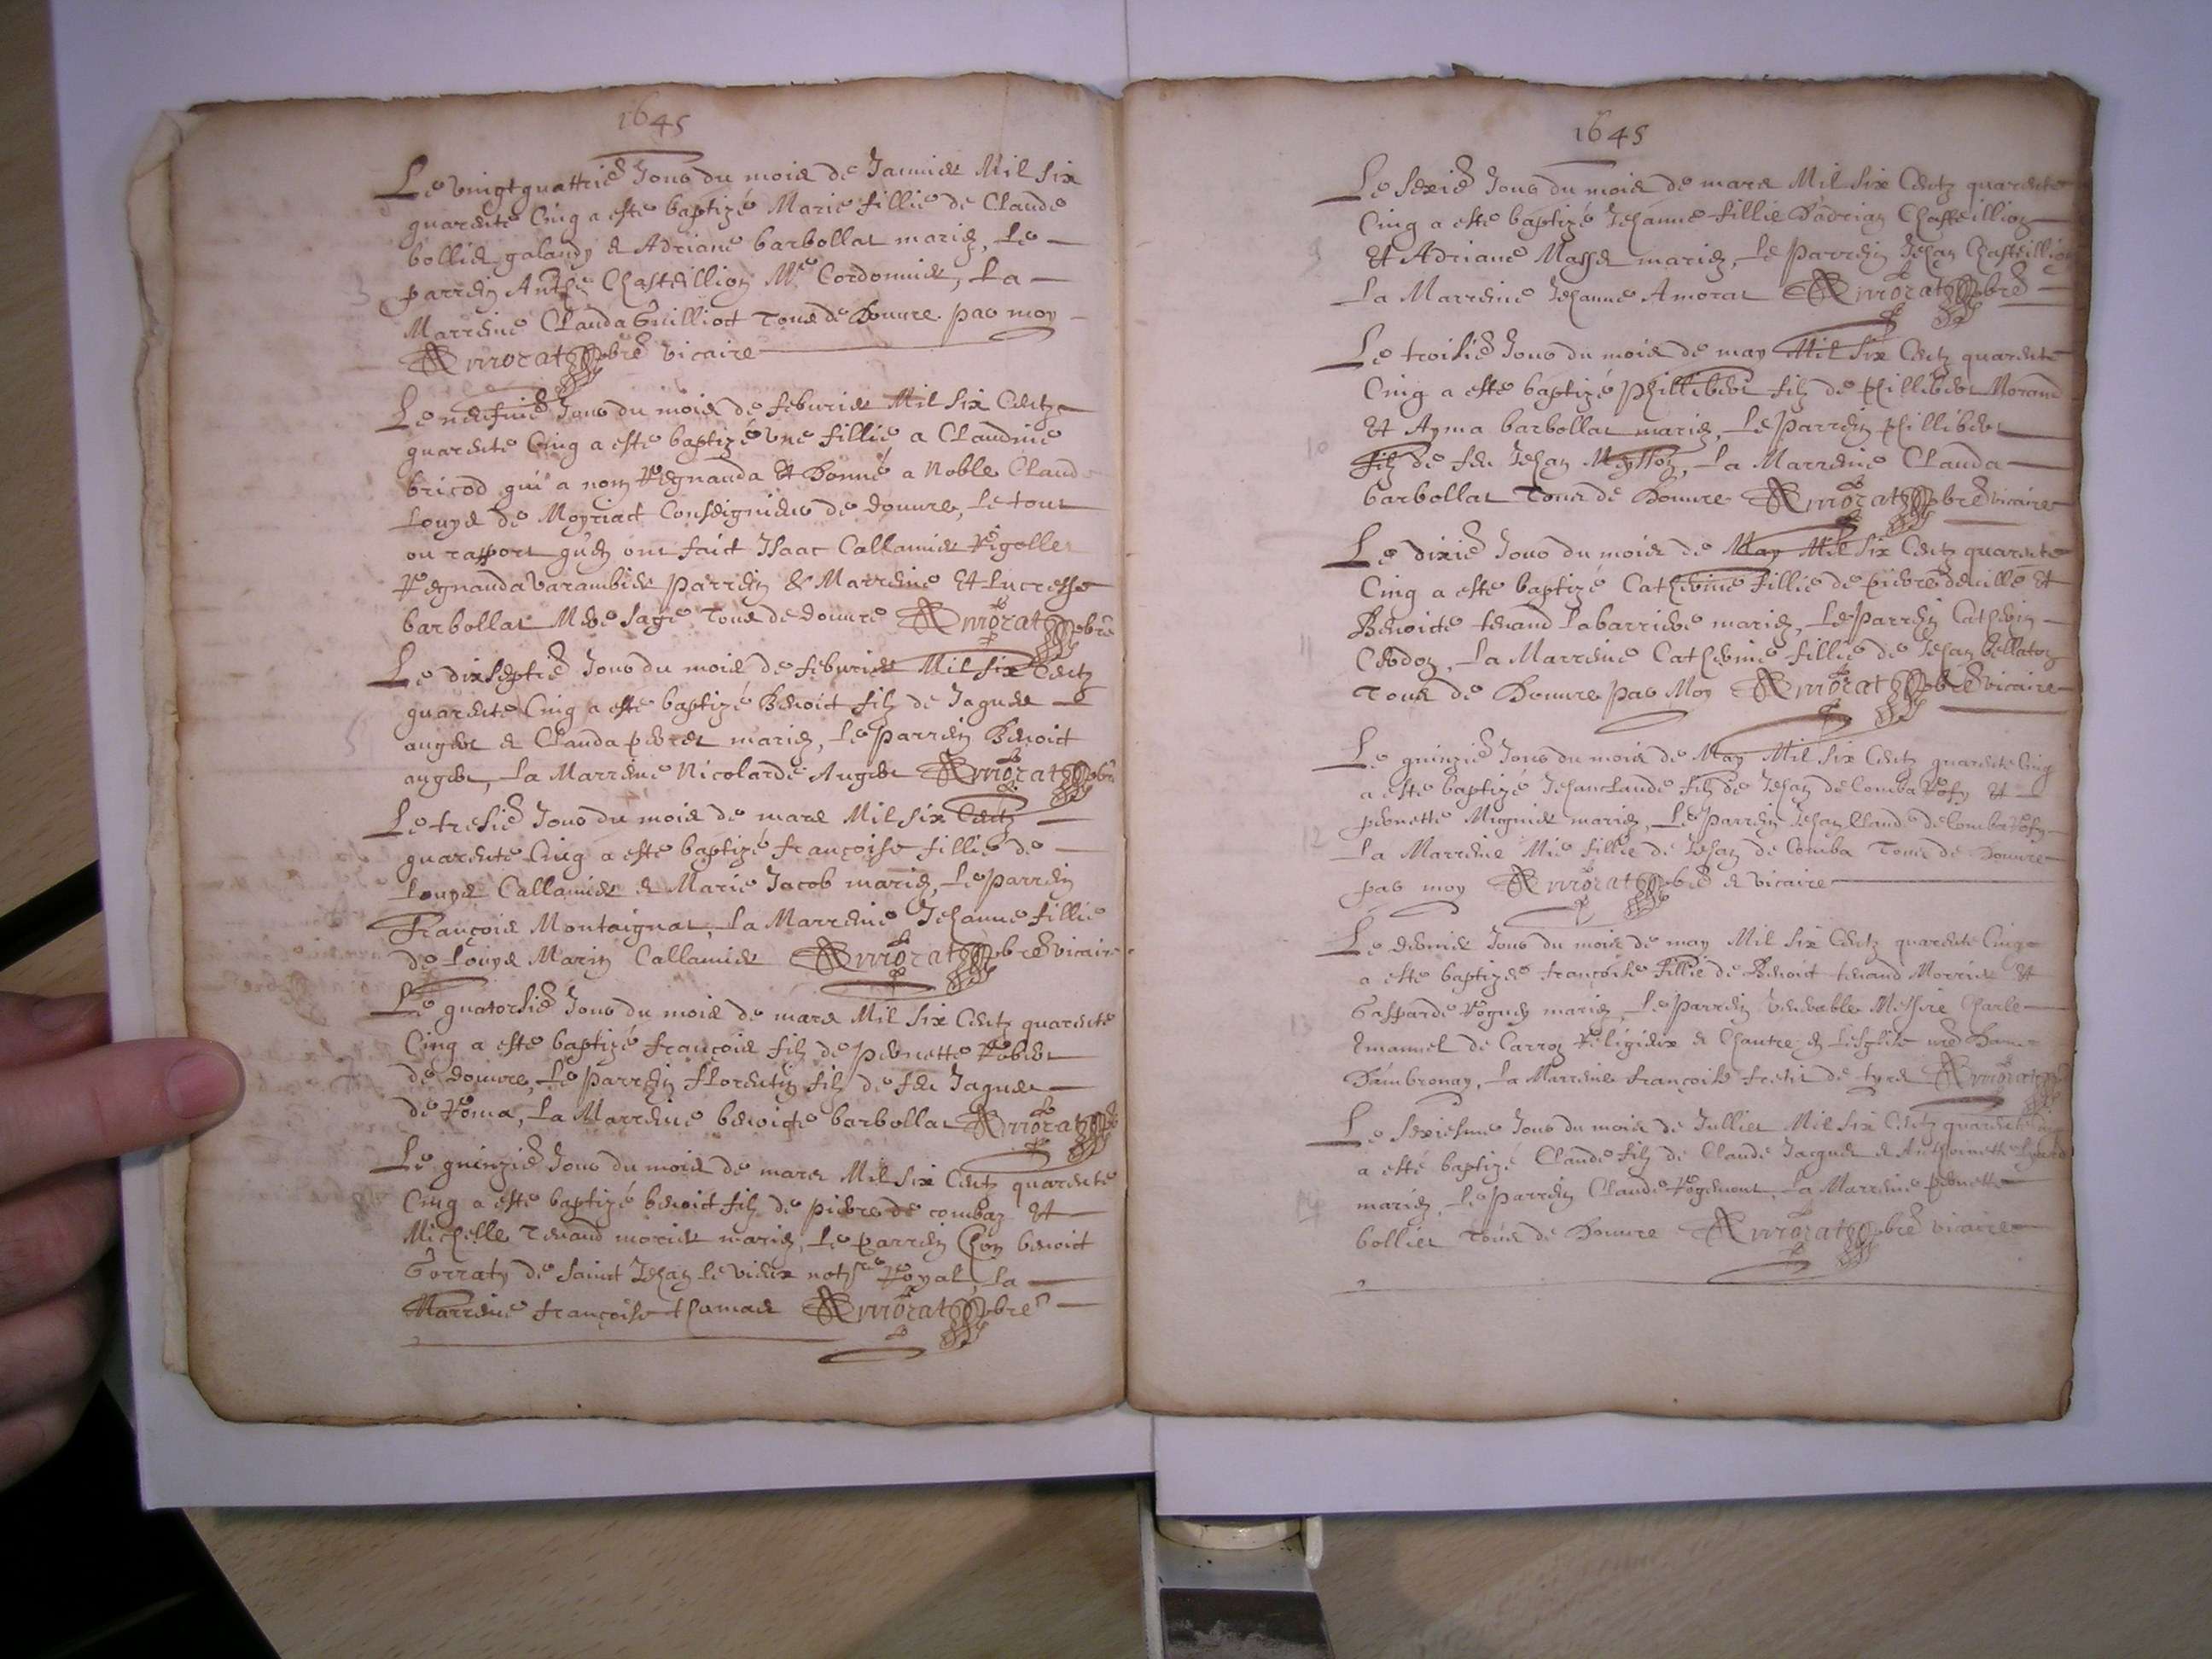 1645
Le vingtquattrie Jour du mois de Januier Mil six
quarente Cinq a este baptizé Marie fillie de Claude
bollier galandy & Adriane barbollat mariez, Le
parrein Anthe Chasteillion Mre Cordonnier, La
Marreine Clauda Guilliot Tous de Douure par moy
Amorat pbre vicaire
Le neufuie Jour du mois de feburier Mil six Centz
quarente Cinq a este baptizé une fillie a Claudine
bricod qui a nom Regnanda Et Donné a Noble Claude
Louys de Moyriact Conseigneur de douure, Le tout
ou rapport qu'en ont faict Isaac Callamier Rigollet
Regnanda Varambier Parrein & Marreine Et Lucresse
barbollat Mere sage, Tous de douure Amorat pbre
Le dixseptie Jour du mois de feburier Mil six Centz
quarente Cinq a este baptizé Benoict filz de Jaques
auger & Clauda perret mariez, Le parrein Benoict
auger, La Marreine Nicolarde Auger Amorat pbre
Le tresie Jour du mois de mars Mil six Centz
quarente Cinq a este baptizé françoise fillie de
Louys Callamier & Marie Jacob mariez, Le parrein
François Montaignat, La Marreine Jehanne fillie
de Louys Marin Callamier Amorat pbre vicaire
Le quatorsie Jour du mois de mars Mil six Centz quarente
Cinq a este baptizé françois filz de pernette Robert
de douure, Le parrein florentin filz de feu Jaques
de Roma, La Marreine benoicte barbollat Amorat pbre
Le quinzie Jour du mois de mars Mil six Centz quarente
Cinq a este baptizé benoict filz de pierre de combaz Et
Michelle Tenand morier mariez, Le parrein hon benoict
Gorraty de saint Jehan le vieux notre Royal, La
Marreine françoise thomas Amorat pbre
1645
Le sexie Jour du mois de mars Mil six Centz quarente
9
Cinq a este baptizé Jehanne fillie D'adrian Chasteillion
Et Adriane Masset mariez, Le parrein Jehan Chasteillion
La Marreine Jehanne Amorat Amorat pbre
Le troisie Jour du mois de may Mil six Centz quarente
10
Cinq a este baptizé phillibert filz de phillibert Morand
Et Ayma barbollat mariez, Le parrein phillibert
filz de feu Jehan, La Marreine Clauda
barbollat Tous de Douure Amorat pbre vicaire
Le dixie Jour du mois de May Mil six Centz quarente
11
Cinq a este baptizé Catherine fillie de pierre deuille Et
Benoicte tenand Labarriere mariez, Le parrein Catherin
Cerdon, La Marreine Catherine fillie de Jehan Bellaton
Tous de Douure par Moy Amorat pbre vicaire
Le quinzie Jour du mois de May Mil six Centz quarente Cinq
12
a este baptizé Jehanclaude filz de Jehan de Comba Rosy Et
pernette Muginier mariez, Le parrein Jehan Claude de Comba Rosy
La Marreine Mie fillie de Jehan de Comba Tous de Douure
par moy Amorat pbre & vicaire
Le dernier Jour du mois de may Mil six Centz quarente Cinq
13
a este baptizée françoise fillie de Benoict tenand Morrier Et
Gasparde Roguey mariez, Le parrein Venerable Messire Charle
Emanuel de Carron Religieux & Chantre en Lesglise nre Dame
Dambronay, La Marreine françoise fretit de tyret Amorat
Le sexiesme Jour du mois de Jullier Mil six Centz quarente Cinq
14
a esté baptizé Claude filz de Claude Jaques & Anthoinette
mariez, Le parrein Claude Rogemont, La Marreine pernette
bollier Tous de Douure Amorat pbre vicaire